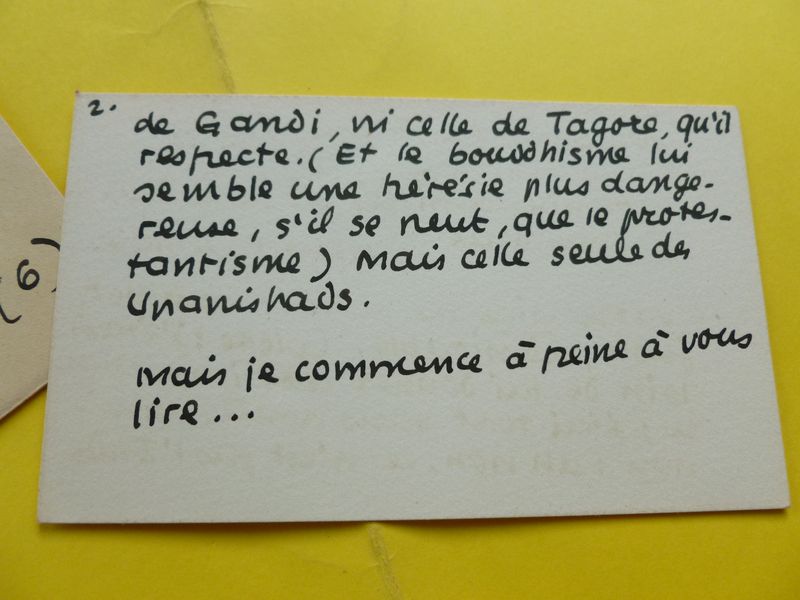 2.
de Gandi, ni celle de Tagore, qu'il
respecte. (Et le bouddhisme lui
semble une hérésie plus dange-
reuse, s'il se peut, que le protes-
tantisme) Mais celle seule des
Upanishads.
Mais je commence à peine à vous
lire...
(6)